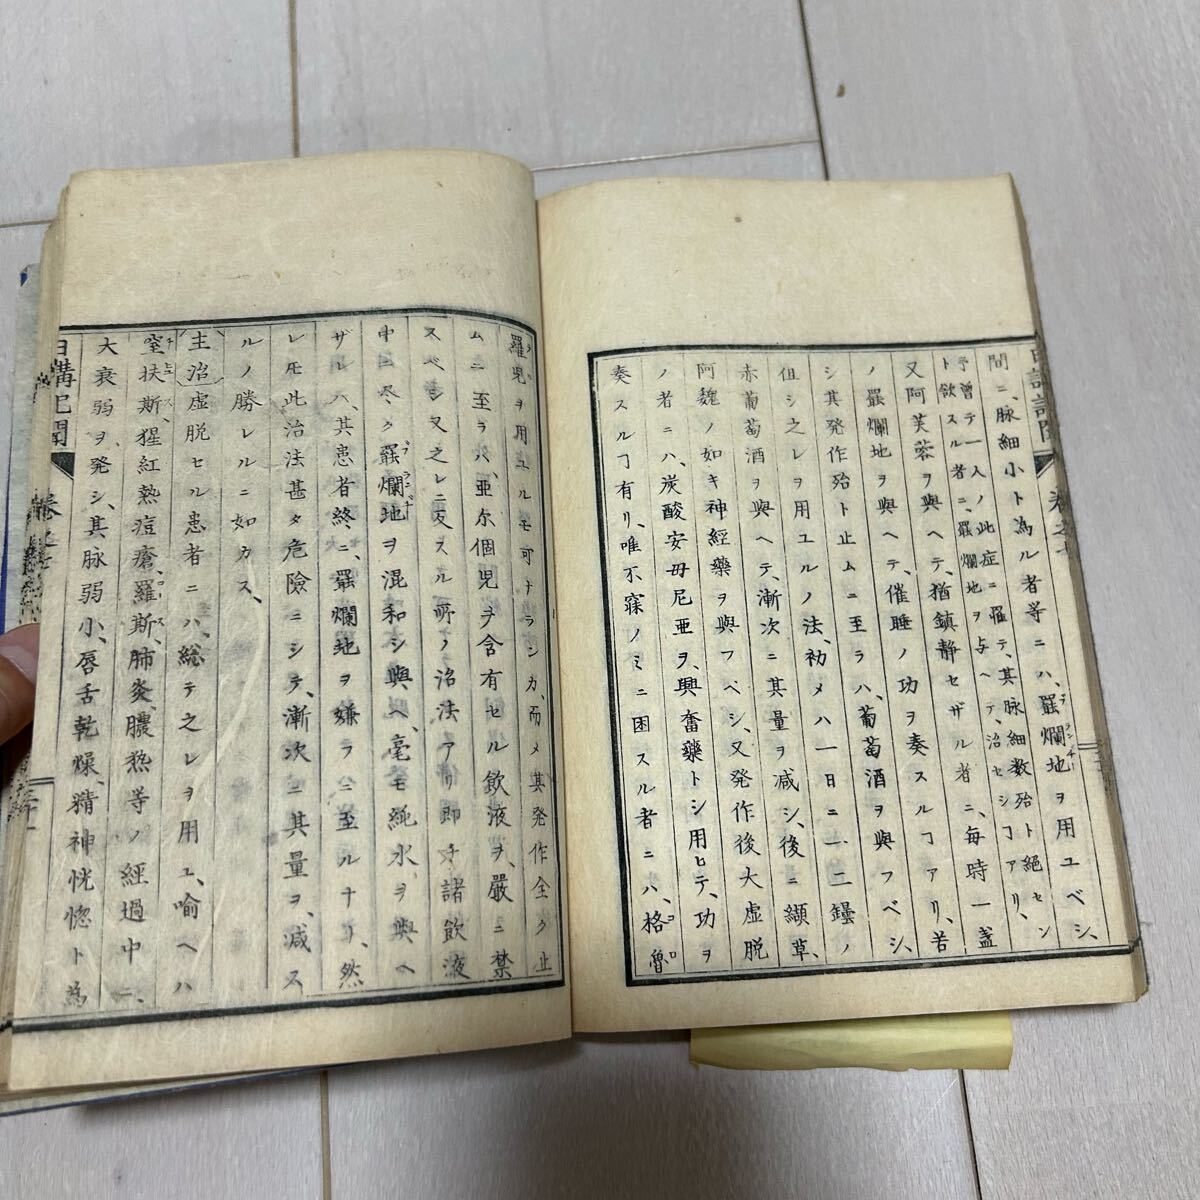 間ニ、脉細小ト為ル者等ニハ、羅爛地ヲ用ユベシ、
予曽テ一人ノ此症ニ罹テ、其脉細数殆ト絶セン
ト欲スル者ニ、羅爛地ヲ与ヘテ、治セシヿアリ、
又阿芙蓉ヲ與ヘテ、猶鎮静セザル者ニ、毎時一盞
ノ羅爛地ヲ與ヘテ、催睡ノ功ヲ奏スルヿアリ、若
シ其発作殆ト止ムニ至ラハ、葡萄酒ヲ與フベシ、
但シ之レヲ用ユルノ法、初メハ一日ニ一二鐘ノ
赤葡萄酒ヲ與ヘテ、漸次ニ其量ヲ減シ、後ニ纈草、
阿魏ノ如キ神經藥ヲ與フベシ、又発作後大虚脱
ノ者ニハ、炭酸安母尼亜ヲ、興奮藥トシ用ヒテ、功ヲ
奏スルヿ有リ、唯不寐ノミニ困スル者ニハ、格魯
羅兒ヲ用ユルモ可ナランカ、而メ其発作全ク止
ムニ至ラハ、亜尓個児ヲ含有セル飲液ヲ、嚴ニ禁
スベシ又之レニ反スル所ノ治法アリ即チ諸飲液
中尽ク羅爛地ヲ混和シ與ヘ、毫モ純水ヲ與ヘ
ザレハ、其患者終ニ、羅爛地ヲ嫌ラニ至ルナリ、然
レ圧此治法甚タ危險ニシテ、漸次ニ其量ヲ、减ス
ルノ勝レルニ如カス、
主治虚脱セル患者ニハ、総テ之レヲ用ユ、喻ヘハ
窒扶斯、猩紅熱、痘瘡、羅斯、肺炎、膿熱等ノ經過中ニ、
大衰弱ヲ発シ、其脉弱小、唇舌乾燥、精神恍惚ト為
日講記聞
巻之